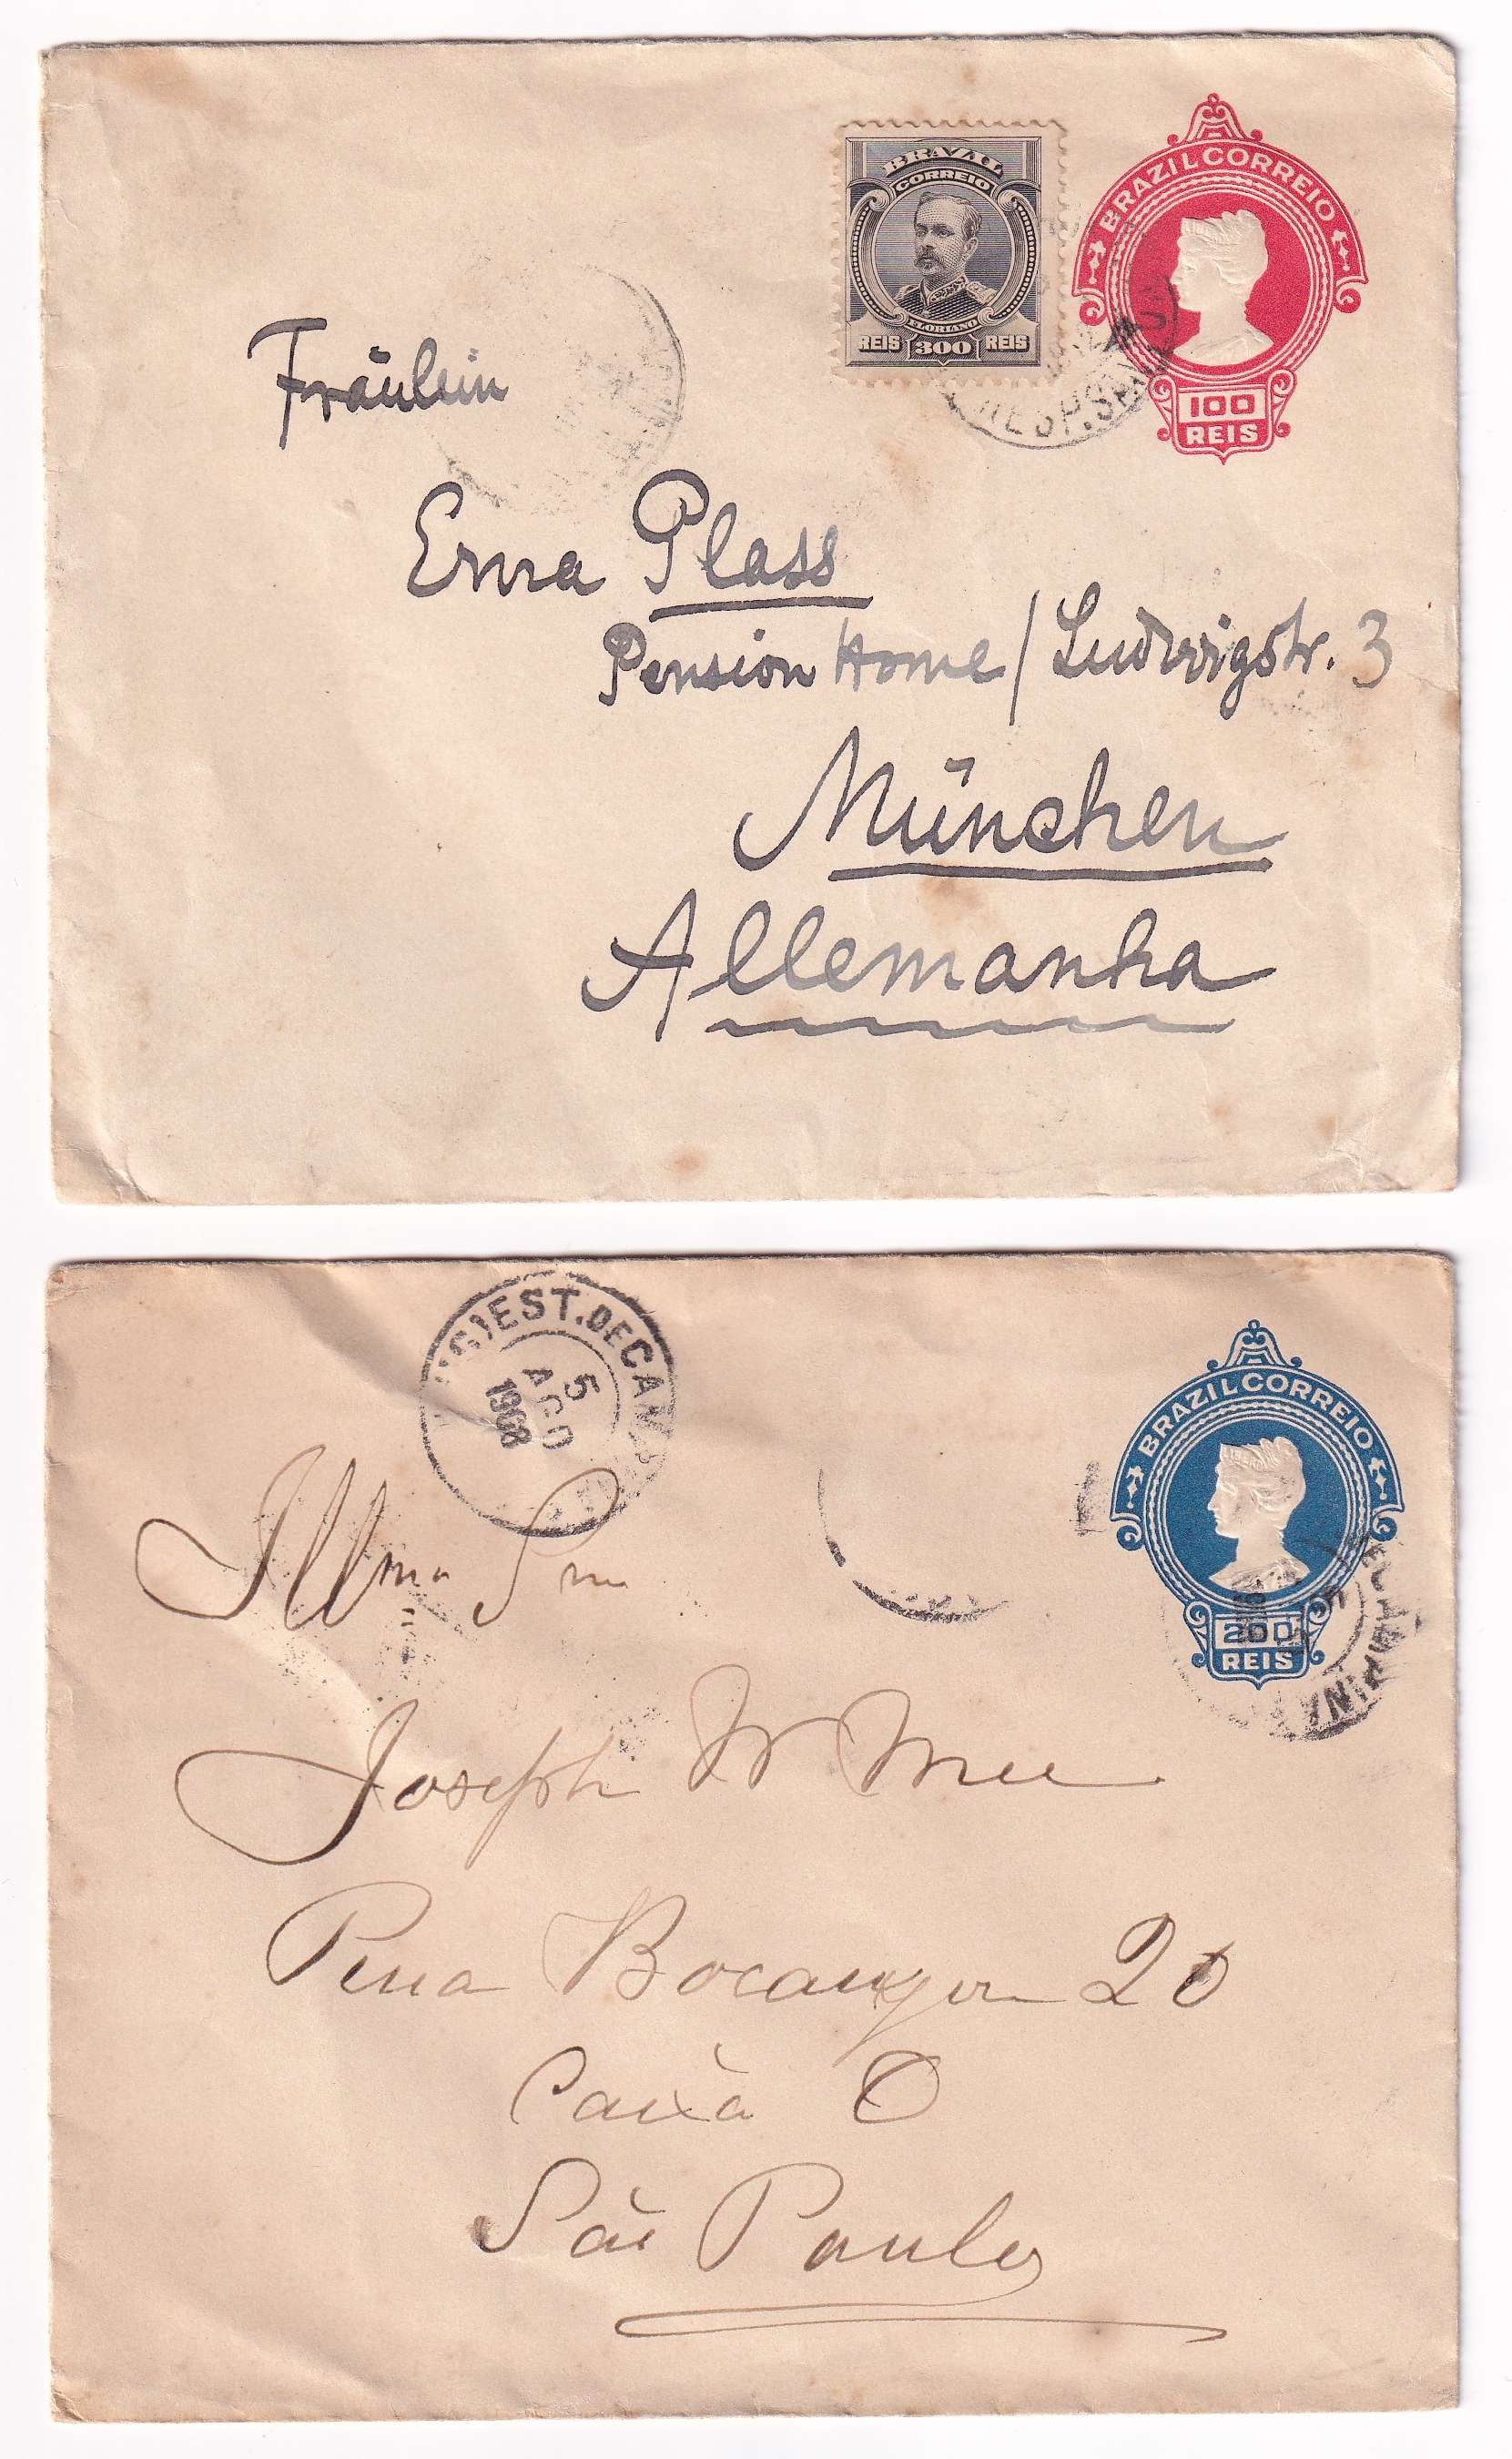 BRAZIL
CORREIO
FLORIANO
REIS 300 REIS
BRAZIL CORREIO
100
REIS
RESP.SANTO
Fräulein
Erna Plass
Pension Home / Ludwigstr. 3
München
Allemanha
EST.DE CAMP
5
AGO
1908
BRAZIL CORREIO
200
REIS
CAMPINA
Illmo Snr
Joseph W Mee
Rua Bocayuva 20
Caixa O
São Paulo